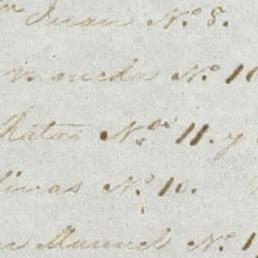 Juan N.o 8.
moneda N.o 1
Ratos N.os 11. y
linas N.o 10.
Manuel N.o 1